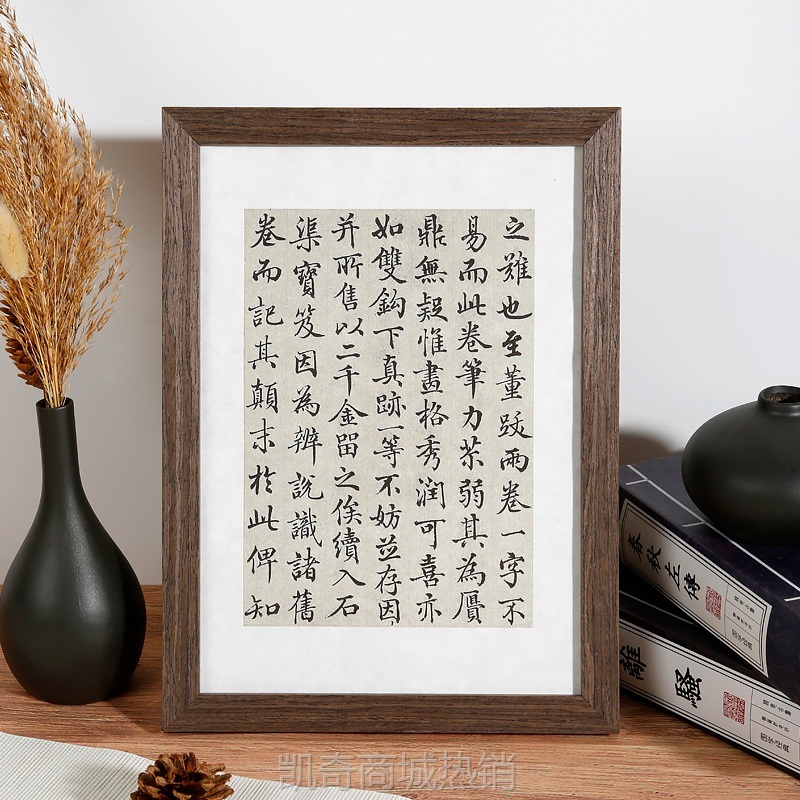 之難也至董跋兩卷一字不
易而此卷筆力苶弱其為贗
鼎無疑惟畫格秀潤可喜亦
如雙鈎下真跡一等不妨並存因
并所售以二千金留之俟續入石
渠寶笈因為辨說識諸舊
卷而記其顛末於此俾知
春秋左傳
離騷
國学经典
凱奇商城热销